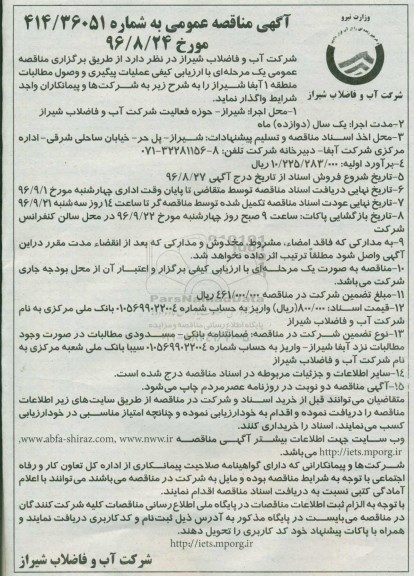 وزارت نیرو
شرکت آب و فاضلاب شیراز
آگهی مناقصه عمومی به شماره ۴۱۴/۳۶۰۵۱
مورخ ۹۶/۸/۲۴
شرکت آب و فاضلاب شیراز در نظر دارد از طریق برگزاری مناقصه
عمومی یک مرحله‌ای با ارزیابی کیفی عملیات پیگیری و وصول مطالبات
منطقه ۱ آبفا شیراز را به شرح زیر به شرکت‌ها و پیمانکاران واجد
شرایط واگذار نماید.
۱-محل اجرا: شیراز- حوزه فعالیت شرکت آب و فاضلاب شیراز
۲-مدت اجرا: یک سال (دوازده) ماه
۳-محل اخذ اسناد مناقصه و تسلیم پیشنهادات: شیراز- پل حر- خیابان ساحلی شرقی- اداره
مرکزی شرکت آبفا- دبیرخانه شرکت تلفن: ۸-۳۲۲۸۱۱۵۶-۰۷۱
۴-برآورد اولیه: ۱۰/۲۲۵/۲۸۳/۰۰۰ ریال
۵-تاریخ شروع فروش اسناد از تاریخ درج آگهی ۹۶/۸/۲۷
۶-تاریخ نهایی دریافت اسناد مناقصه توسط متقاضی تا پایان وقت اداری چهارشنبه مورخ ۹۶/۹/۱
۷-تاریخ نهایی عودت اسناد مناقصه تکمیل شده توسط مناقصه گر تا ساعت ۱۴ روز سه‌شنبه ۹۶/۹/۲۱
۸-تاریخ بازگشایی پاکات: ساعت ۹ صبح روز چهارشنبه مورخ ۹۶/۹/۲۲ در محل سالن کنفرانس
شرکت
۹-به مدارکی که فاقد امضاء، مشروط، مخدوش و مدارکی که بعد از انقضاء مدت مقرر دراین
آگهی واصل شود مطلقاً ترتیب اثر داده نخواهد شد.
۱۰-مناقصه به صورت یک مرحله‌ای با ارزیابی کیفی برگزار و اعتبار آن از محل بودجه جاری
شرکت می‌باشد.
۱۱-مبلغ تضمین شرکت در مناقصه ۴۶۱/۰۰۰/۰۰۰ ریال
۱۲-قیمت اسناد: (۸۰۰/۰۰۰ریال) واریز به حساب شماره ۰۱۰۵۶۹۹۰۲۲۰۰۴ بانک ملی مرکزی به نام
شرکت آب و فاضلاب شیراز
۱۳-نوع تضمین شرکت در مناقصه: ضمانتنامه بانکی- مسدودی مطالبات در صورت وجود
مطالبات نزد آبفا شیراز- واریز به حساب شماره ۰۱۰۵۶۹۹۰۲۲۰۰۴ سیبا بانک ملی شعبه مرکزی به
نام شرکت آب و فاضلاب شیراز
۱۴-سایر اطلاعات و جزئیات مربوطه در اسناد مناقصه درج شده است.
۱۵-آگهی مناقصه دو نوبت در روزنامه عصرمردم چاپ می‌شود.
متقاضیان می‌توانند قبل از خرید اسناد و شرکت در مناقصه از طریق سایت‌های زیر اطلاعات
مناقصه را دریافت نموده و اقدام به خودارزیابی نموده و چنانچه امتیاز مناسبی در خودارزیابی
کسب می‌نمایند، اسناد را خریداری کنند.
وب سایت جهت اطلاعات بیشتر آگهی مناقصه www.abfa-shiraz.com, www.nww.ir,
http://iets.mporg.ir می‌باشد.
شرکت‌ها و پیمانکارانی که دارای گواهینامه صلاحیت پیمانکاری از اداره کل تعاون کار و رفاه
اجتماعی با توجه به شرایط مناقصه بوده و مایل به شرکت در مناقصه می‌باشند می‌توانند با اعلام
آمادگی کتبی نسبت به دریافت اسناد مناقصه اقدام نمایند.
با توجه به الزام ثبت اطلاعات مناقصات در پایگاه ملی اطلاع رسانی مناقصات کلیه شرکت کنندگان
در مناقصه می‌بایست در پایگاه مذکور به آدرس ذیل ثبت‌نام و کد کاربری دریافت نمایند و
همراه با پاکات پیشنهاد خود کد کاربری را تحویل دهند.
http://iets.mporg.ir
شرکت آب و فاضلاب شیراز